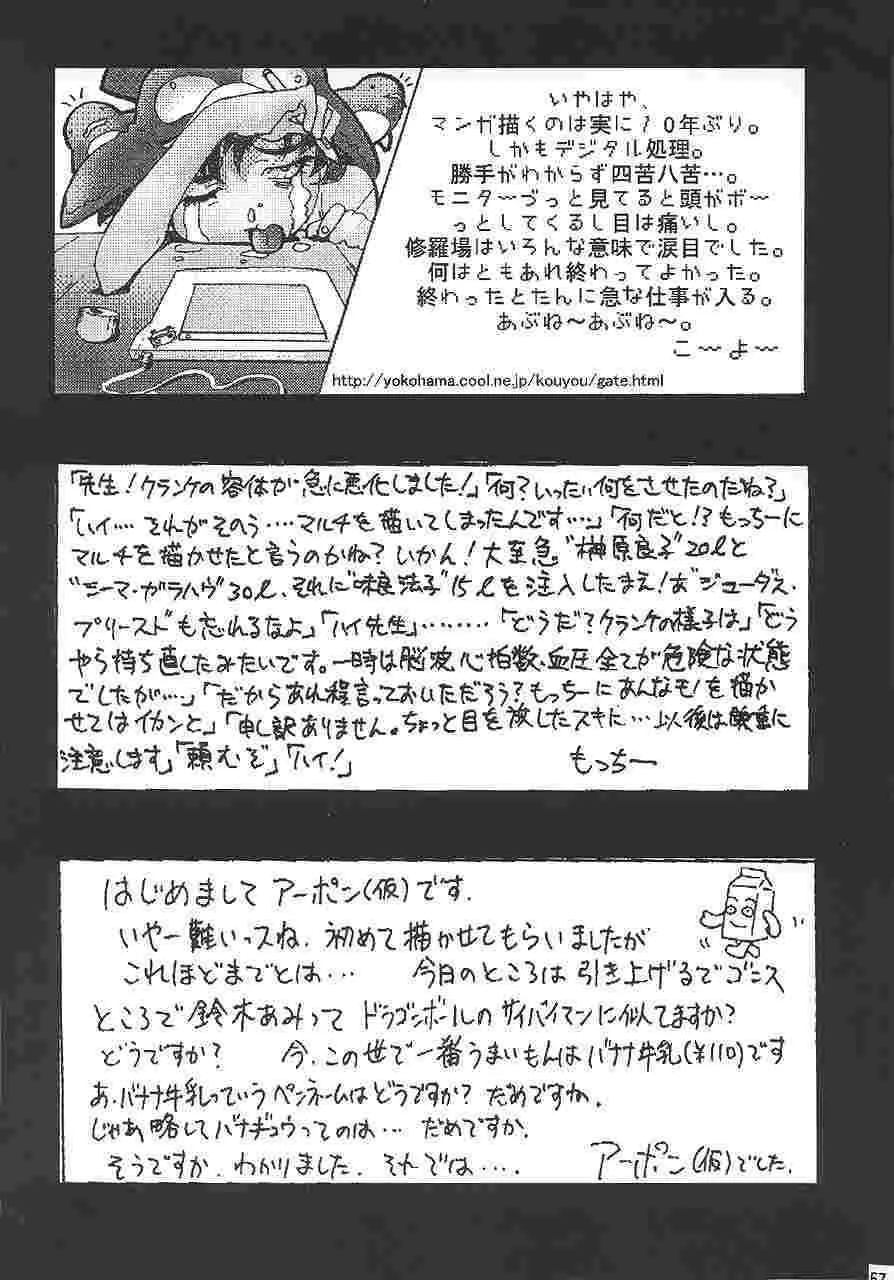 いやはや、
マンガ描くのは実に10年ぶり。
しかもデジタル処理。
勝手がわからず四苦八苦…。
モニタ～づっと見てると頭がボ～
っとしてくるし目は痛いし。
修羅場はいろんな意味で涙目でした。
何はともあれ終わってよかった。
終わったとたんに急な仕事が入る。
あぶね～あぶね～。
こ～よ～
http://yokohama.cool.ne.jp/kouyou/gate.html
「先生！クランケの容体が急に悪化しました！」「何？いったい何をさせたのだね？」
「ハイ…. それがそのう….マルチを描いてしまったんです….」「何だと！？もっちーに
マルチを描かせたと言うのかね？いかん！大至急“榊原良子”20ℓと
“ニーマ・ガラハヴ”30ℓ、それに“味良法子”15ℓを注入したまえ！あ“ジューダス・
プリースト”も忘れるなよ」「ハイ先生」………「どうだ？クランケの様子は」「どう
やら持ち直したみたいです。一時は脳波、心拍数、血圧全てが危険な状態
でしたが….」「だからあれ程言っておいただろう？もっちーにあんなモノを描か
せてはイカンと」「申し訳ありません。ちょっと目を放したスキに…以後は
注意します」「頼むぞ」「ハイ！」
もっちー
はじめまして アーポン(仮)です.
いやー難いっスね. 初めて描かせてもらいましたが
これほどまでとは… 今日のところは引き上げるでゴンス
ところで鈴木あみって ドラゴンボールのサイバイマンに似てますか？
どうですか？ 今、この世で一番うまいもんはバナナ牛乳(¥110)です
あ、バナナ牛乳っていうペンネームはどうですか？ だめですか.
じゃあ略してバナギュウってのは… だめですか.
そうですか. わかりました. それでは….
アーポン(仮)でした.
67